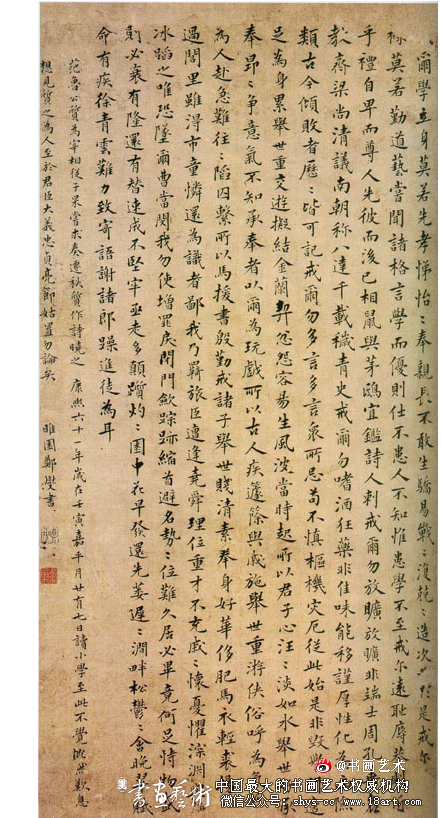 爾學立身莫若先孝悌怡〻奉親長不敢生驕易戰〻復兢〻造次必於是戒爾
祿莫若勤道藝嘗聞諸格言學而優則仕不患人不知惟患學不至戒尔遠恥辱恭則
乎禮自卑而尊人先彼而後己相鼠與茅鴟宜鑑詩人刺戒爾勿放曠放曠非端士周孔垂名
教齊梁尚清議南朝稱八達千載穢青史戒爾勿嗜酒狂藥非佳味能移謹厚性化為
類古今傾敗者歷〻皆可記戒爾勿多言多言衆所忌苟不慎樞機灾厄從此始是非毀
足為身累舉世重交遊擬結金蘭契忿怨容易生風波當時起所以君子心汪〻淡如水舉世
奉昂〻争意氣不知承奉者以爾為玩戲所以古人疾籧篨與戚施舉世重游俠俗呼為
為人赴急難往〻陷囚繫所以馬援書殷勤戒諸子舉世賤清素奉身好華侈肥馬衣輕裘
過閭里雖得市童憐還為識者鄙我乃羇旅臣遭逢堯舜理位重才不充戚〻懷憂懼深淵
冰蹈之唯恐墜爾曹當閔我勿使增罪戾閉門歛踪跡縮首避名勢〻位難久居畢竟何足恃物
則必衰有隆還有替速成不堅牢亟走多顛躓灼〻園中花早發還先萎遲〻澗畔松鬱〻含晚翠
命有疾徐青雲難力致寄語謝諸郎躁進徒為耳
范魯公質為宰相從子杲嘗求奏遷秩質作詩曉之 康熙六十一年歲在壬寅嘉平月廿有七日讀小學至此不覺慨然歎息
想見質之為人至於君臣大義忠貞亮節姑置勿論矣 雎園鄭燮書
@书画艺术
書画藝術
中国最大的书画艺术权威机构
微信公众号：shys-cc www.18art.com